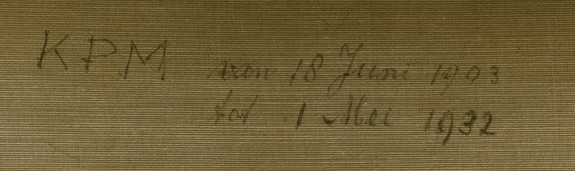 KPM van 18 Juni 1903
tot 1 Mei 1932